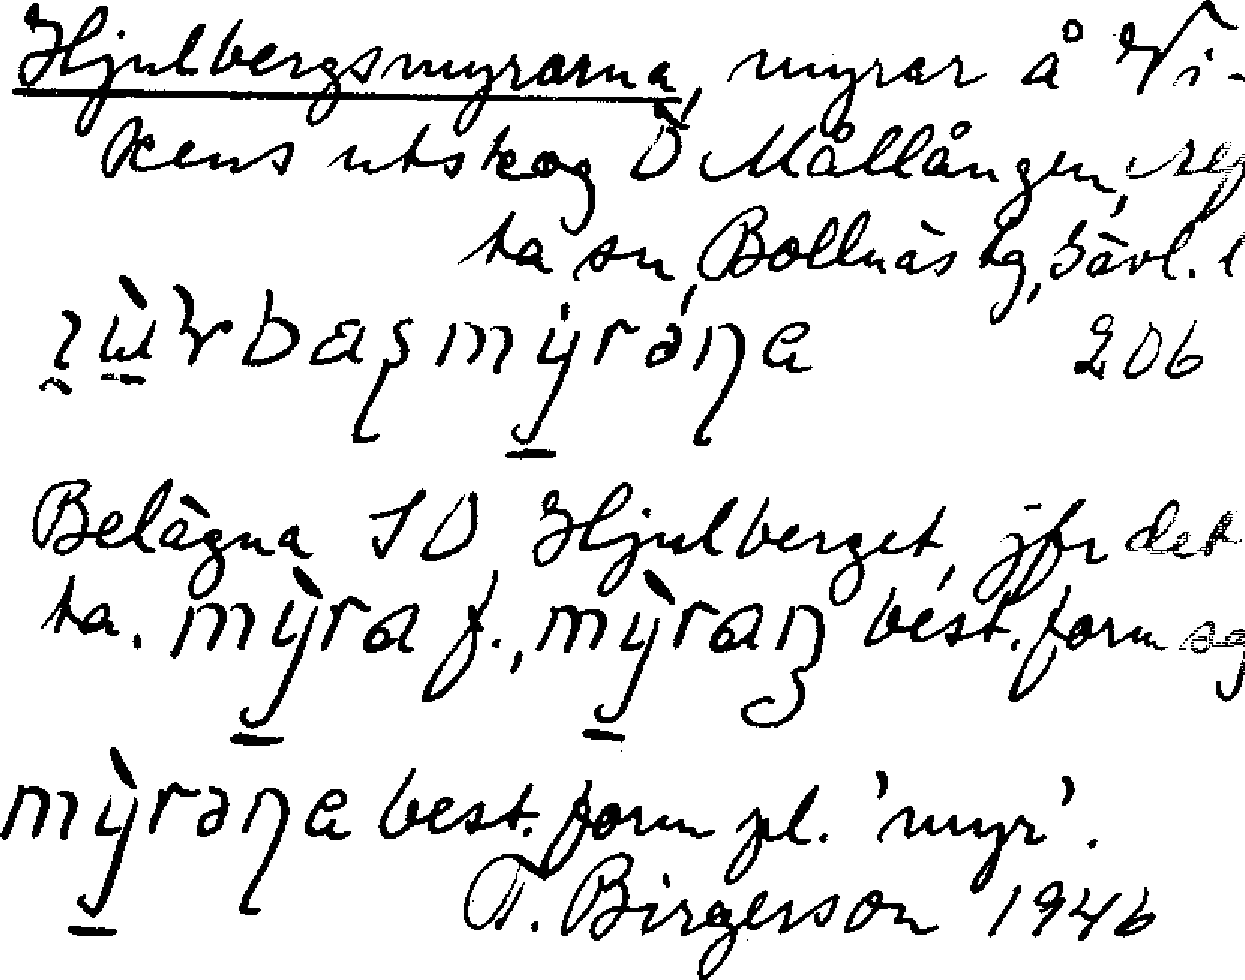 Hjulbergsmyrarna, myrar å Vi-
kens utskog Ö Mållången, Ref
ta sn, Bollnäs tg, Gävl. l
206
Belägna SO Hjulberget, jfr det
ta. mỳra f., mỳraɳ best. form sg
mỳrəɳa best. form pl. 'myr'.
T. Birgerson 1946